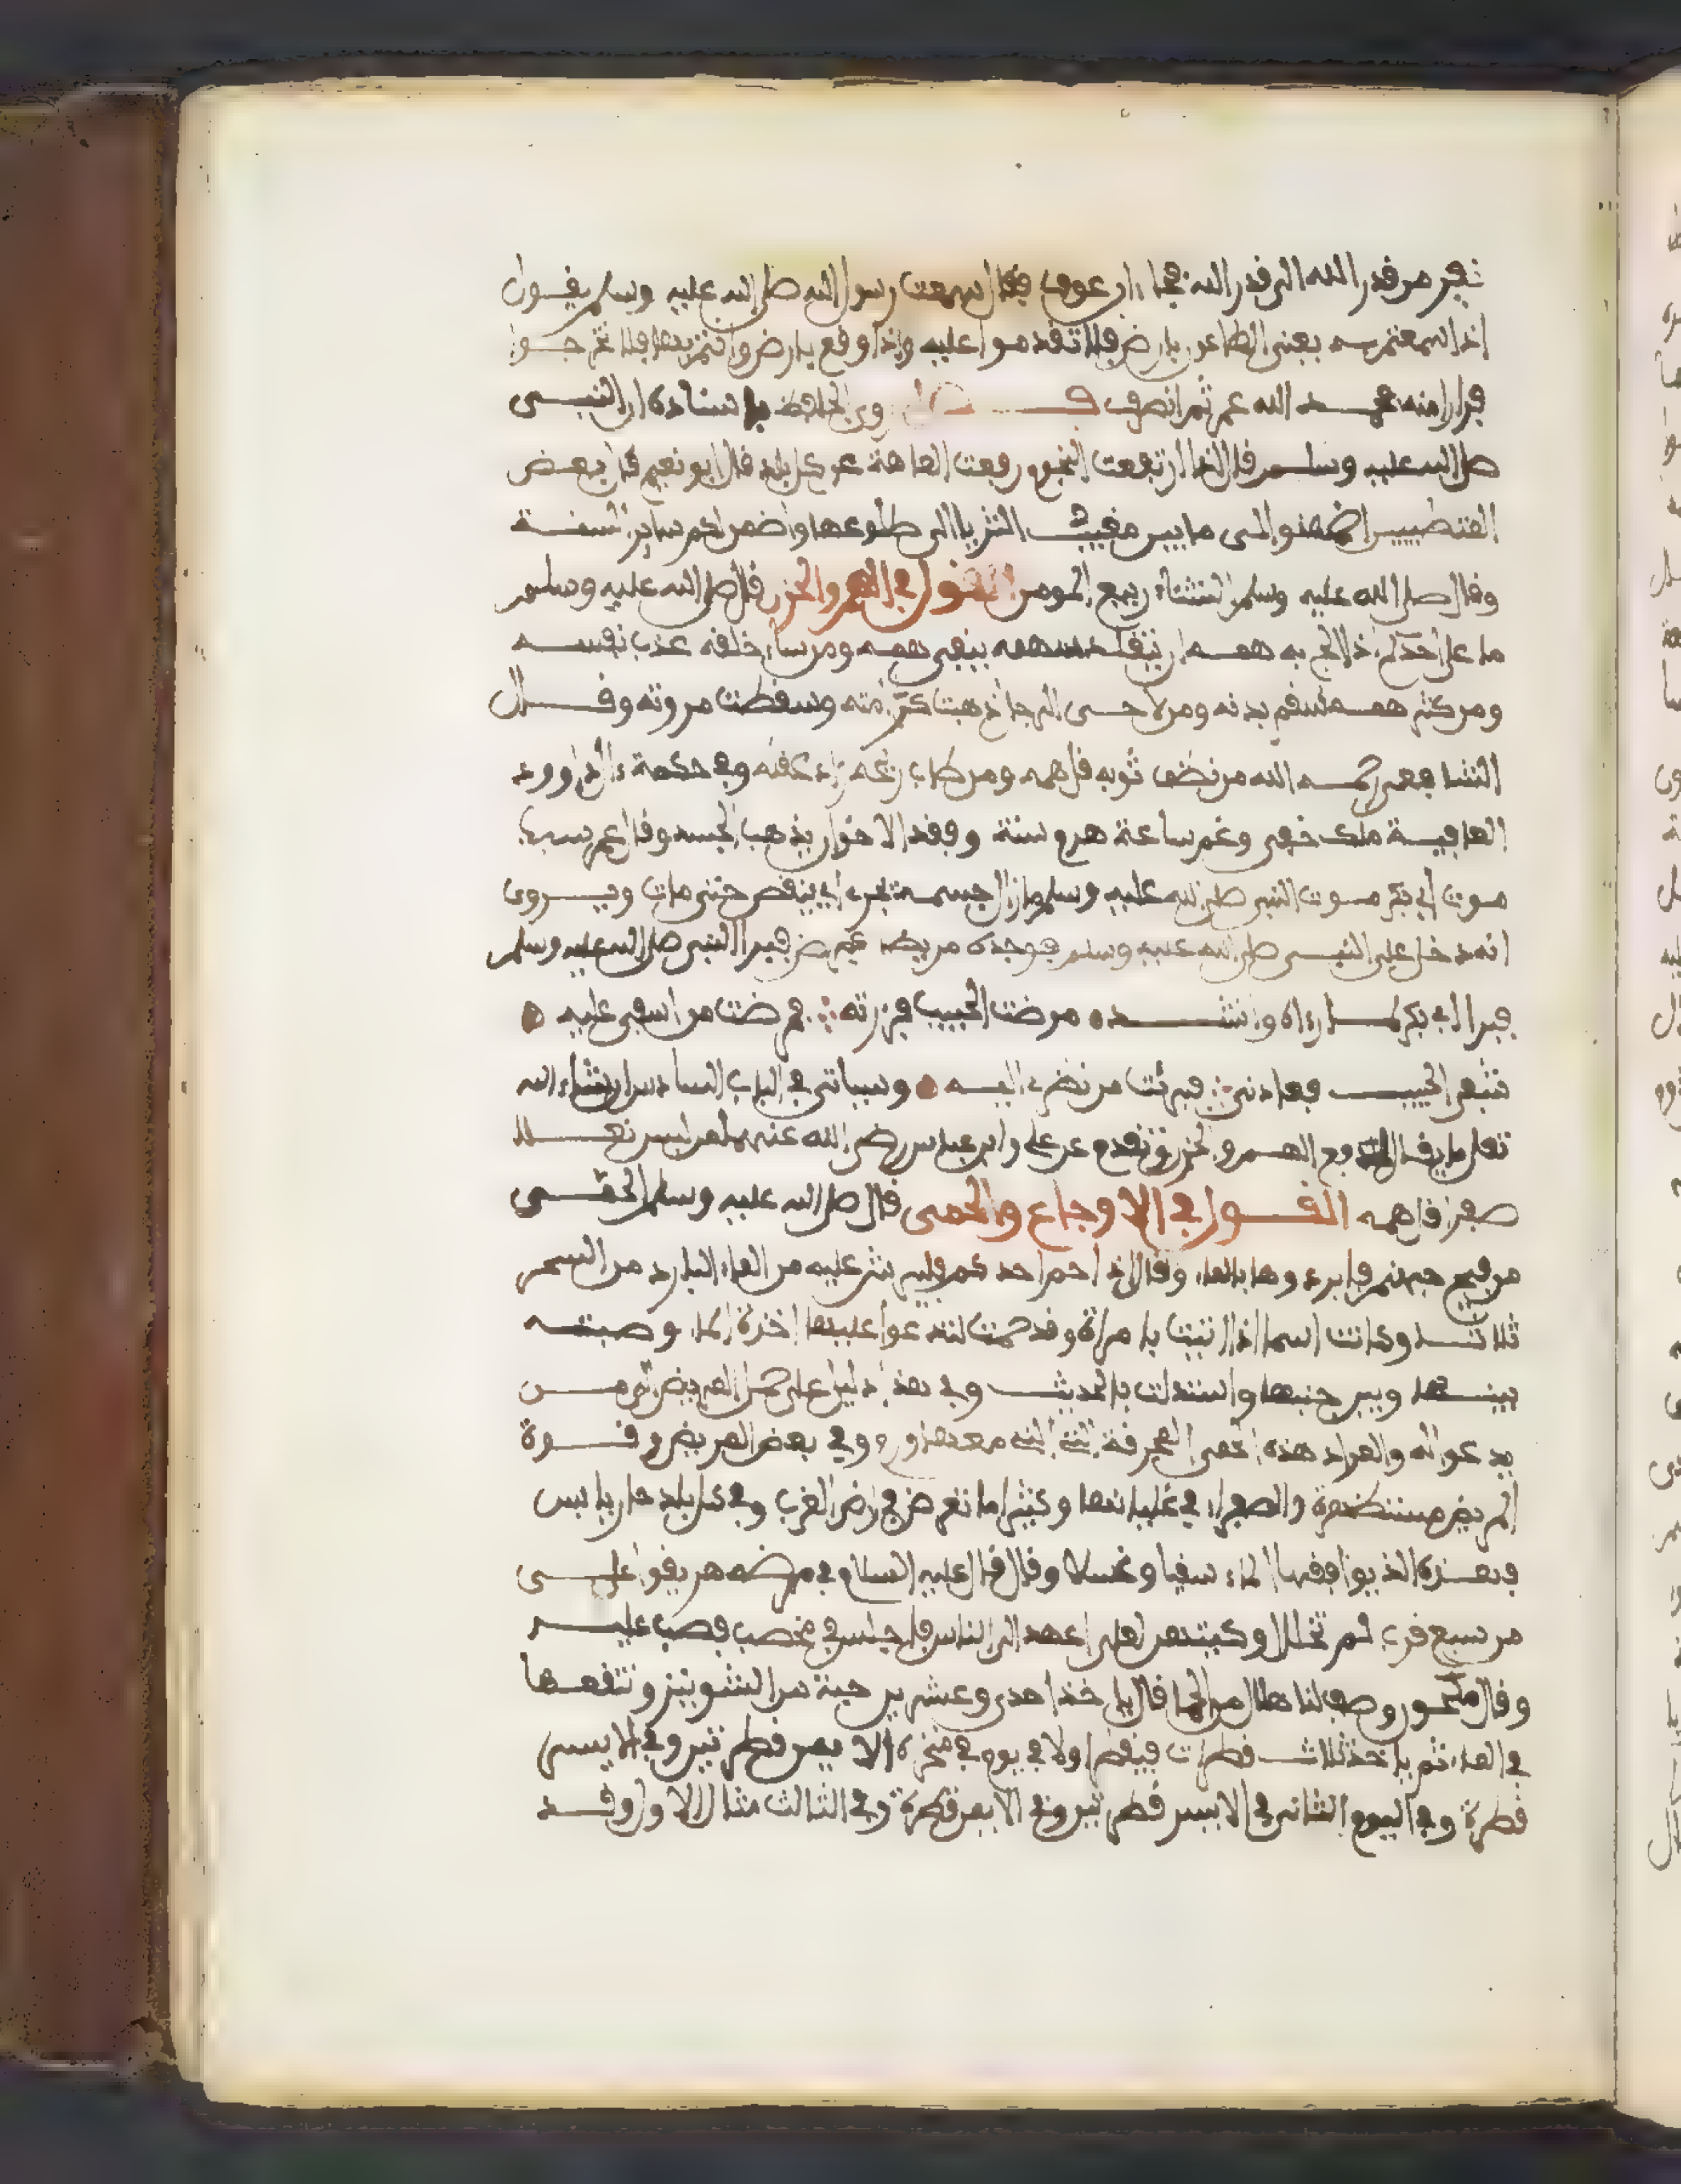 نفر من قدر الله الى قدر الله فجاء ابن عوف فقال سمعت رسول الله صلى الله عليه وسلم يقول
اذا سمعتم به يعني الطاعون بارض فلا تقدموا عليه واذا وقع بارض وانتم بها فلا تخرجوا
فرارا منه فحمد الله عمر ثم انصرف فصل روى الحافظ باسناده ان النبي
صلى الله عليه وسلم قال اذا ارتفعت النجوم رفعت العاهة عن كل بلد قال ابو نعيم قال بعض
المتطببين اضمنوا لي ما بين مغيب الثريا الى طلوعها واضمن لكم سائر السنة
وقال صلى الله عليه وسلم الشتاء ربيع المومن القول في الهم والحزن قال صلى الله عليه وسلم
ما على احدكم اذا لج به همه ان يتقلد سهمه ينفي همه ومن ساء خلقه عذب نفسه
ومن كثر همه سقم بدنه ومن لاحى الرجال ذهبت كرامته وسقطت مروته وقال
الشافعي رحمه الله من نظف ثوبه قل همه ومن طاب ريحه زاد عقله وفي حكمة ءال داوود
العافية ملك خفي وغم ساعة هرم سنة وفقد الاخوان يذهب الجسد وقال عمر سبب
موت ابي بكر موت النبي صلى الله عليه وسلم ما زال جسمه يجري اي ينقص حتى مات ويروى
انه دخل على النبي صلى الله عليه وسلم فوجده مريضا فمرض فبرا النبي صلى الله عليه وسلم
فبرا ابي بكر لما رءاه وانشده مرض الحبيب فزرته فمرضت من اسفي عليه
شفي الحبيب فعادني فبرئت من نظري اليه وسياتي في الباب السادس ان شاء الله
تعلى ما يقال لدفع الهم والحزن وتقدم عن علي وابن عباس رضي الله عنهما من لبس نعلا
صفرا قل همه القول في الاوجاع والحمى قال صلى الله عليه وسلم الحمى
من فيح جهنم فابردوها بالماء وقال اذا حم احدكم فليشن عليه من الماء البارد من السحر
ثلاثا وكانت اسما اذا اتيت بامراة وقد حمت لتدعوا عليها اخذت الماء وصبته
بينها وبين جنبها واستدلت بالحديث وفي هذا دليل على حمل المريض الى من
يدعوا له والمراد هذه الحمى المحرقة وفي بعض المريض قوة
المريض مستظهرة والصفراء في غليانها وكثيرا ما تعرض في ارض العرب وفي كل بلد حار يابس
فهذه الذي يوافقها الماء سقيا وغسلا وقال قال عليه السلام في مرضه هريقوا علي
من سبع قرب لم تحلل اوكيتهن لعلي اعهد الى الناس فاجلس في مخضب فصب عليه
وقال مكحول وصف لنا هلال من الحمى قال ياخذ احدى وعشرين حبة من الشونيز وتنقعها
في الماء ثم ياخذ ثلاث قطرات فيقطر اول في يوم في منخره الايمن قطرتين وفي الايسر
قطرة وفي اليوم الثاني في الايسر قطرتين وفي الايمن قطرة وفي الثالث مثل الاول وقد